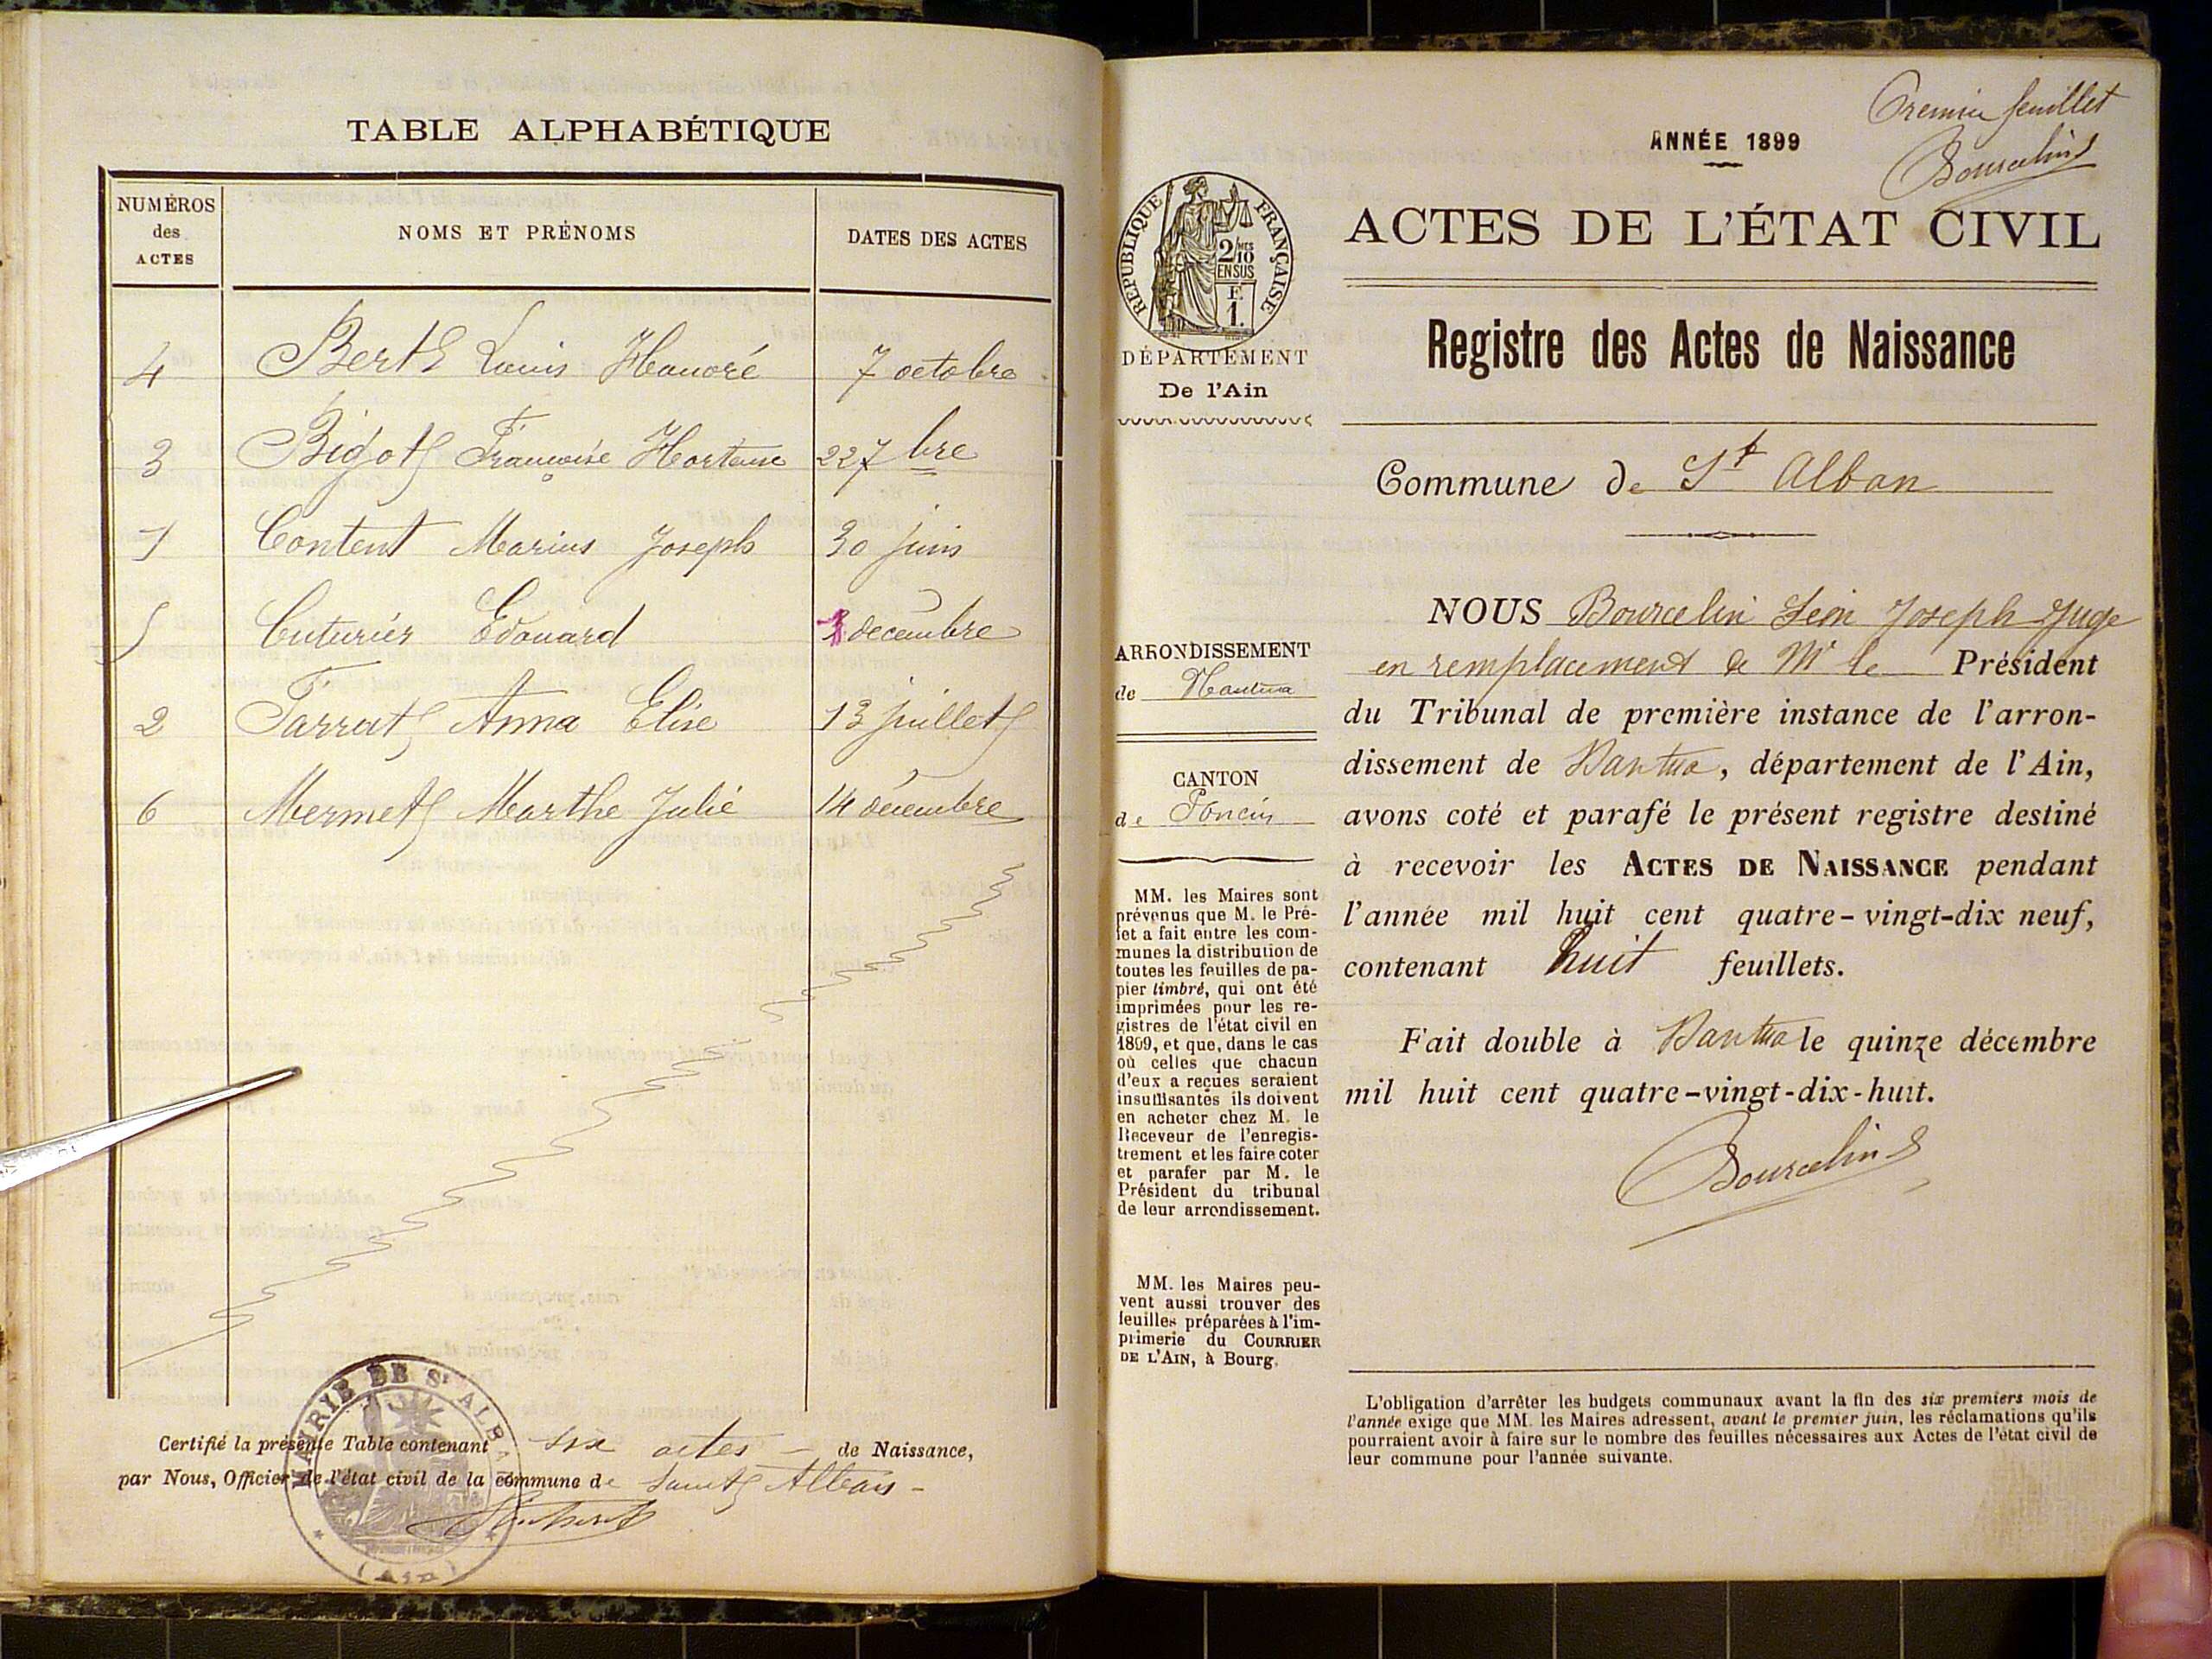 TABLE ALPHABÉTIQUE
NUMÉROS des ACTES NOMS ET PRÉNOMS DATES DES ACTES
4 Berth Louis Honoré 7 octobre
3 Bigot Françoise Hortense 22 7bre
1 Content Marius Joseph 30 juin
5 Cuturier Edouard 1 decembre
2 Jarrat Anna Elise 13 juillet
6 Mermet Marthe Julie 14 décembre
Certifié la présente Table contenant six actes de Naissance,
par Nous, Officier de l'état civil de la commune de Saint Alban
MAIRIE DE St ALBAN
(Ain)
Premier feuillet
Bourcelin
ANNÉE 1899
ACTES DE L'ÉTAT CIVIL
RÉPUBLIQUE FRANÇAISE
2/10 MES
EN SUS
F.
1.
DÉPARTEMENT
De l'Ain
Registre des Actes de Naissance
Commune de St Alban
ARRONDISSEMENT
de Nantua
CANTON
de Poncin
MM. les Maires sont
prévenus que M. le Pré-
fet a fait entre les com-
munes la distribution de
toutes les feuilles de pa-
pier timbré, qui ont été
imprimées pour les re-
gistres de l'état civil en
1899, et que, dans le cas
où celles que chacun
d'eux a reçues seraient
insuffisantes ils doivent
en acheter chez M. le
Receveur de l'enregis-
trement et les faire coter
et parafer par M. le
Président du tribunal
de leur arrondissement.
MM. les Maires peu-
vent aussi trouver des
feuilles préparées à l'im-
primerie du COURRIER
DE L'AIN, à Bourg.
NOUS Bourcelin Léon Joseph Juge
en remplacement de Mr le Président
du Tribunal de première instance de l'arron-
dissement de Nantua, département de l'Ain,
avons coté et parafé le présent registre destiné
à recevoir les ACTES DE NAISSANCE pendant
l'année mil huit cent quatre-vingt-dix neuf,
contenant huit feuillets.
Fait double à Nantua le quinze décembre
mil huit cent quatre-vingt-dix-huit.
Bourcelin
L'obligation d'arrêter les budgets communaux avant la fin des six premiers mois de
l'année exige que MM. les Maires adressent, avant le premier juin, les réclamations qu'ils
pourraient avoir à faire sur le nombre des feuilles nécessaires aux Actes de l'état civil de
leur commune pour l'année suivante.